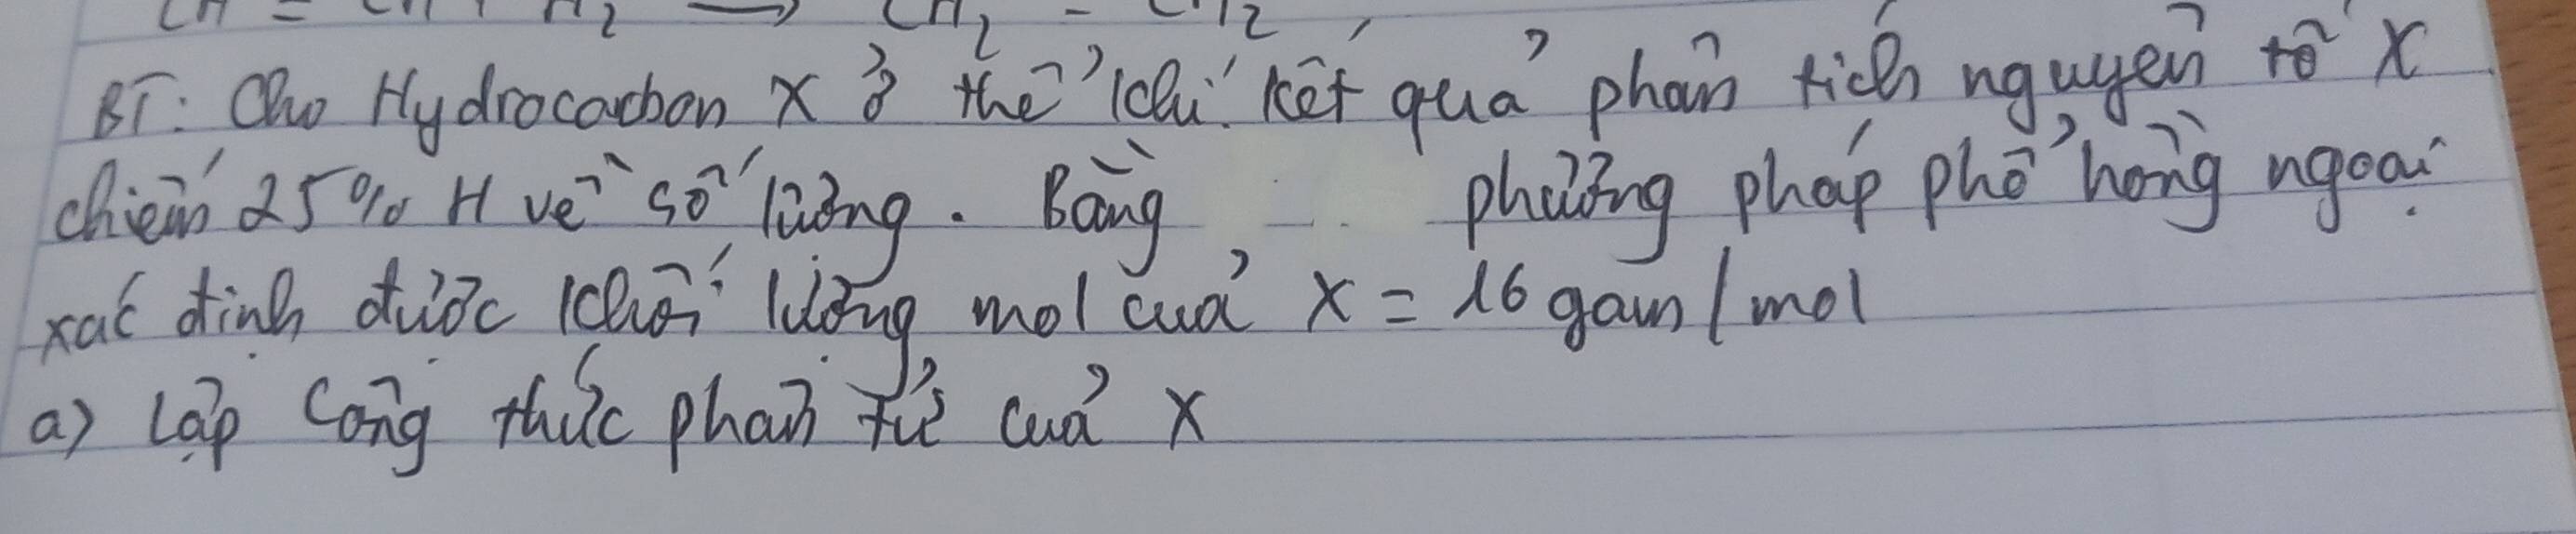 CH = CH + H2 → CH2 - CH2
BT: Cho Hydrocacbon X ở thể khí. Kết quả phân tích nguyên tố X
chiếm 25% H về số lượng. Bằng phương pháp phổ hồng ngoại
xác định được khối lượng mol của X = 16 gam/mol
a) Lập công thức phân tử của X